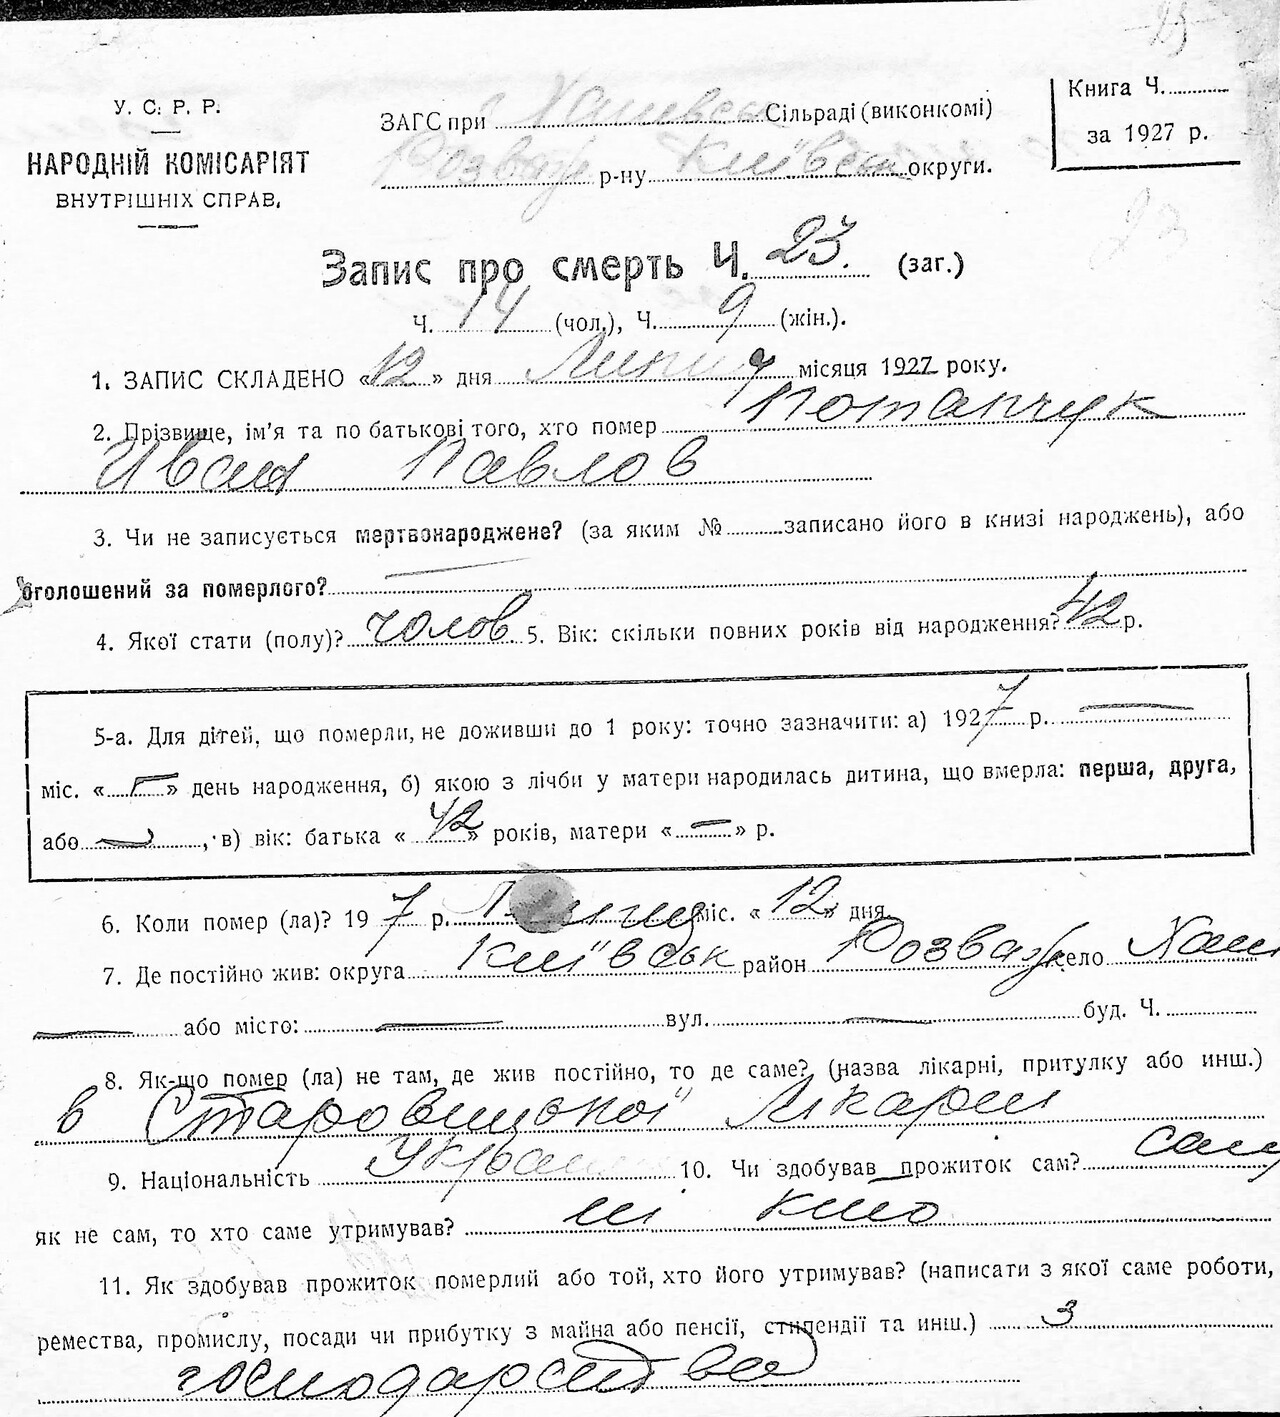 25
У. С. Р. Р.
НАРОДНІЙ КОМІСАРІЯТ
ВНУТРІШНІХ СПРАВ.
ЗАГС при Хашевськ Сільраді (виконкомі)
Розваж р-ну Київськ округи.
Книга Ч.
за 1927 р.
23
Запис про смерть Ч. 23. (заг.)
Ч. 14 (чол.), Ч. 9 (жін.).
1. ЗАПИС СКЛАДЕНО «12» дня Липня місяця 1927 року.
2. Прізвище, ім'я та по батькові того, хто помер Потапчук
Иван Павлов
3. Чи не записується мертвонароджене? (за яким № записано його в книзі народжень), або
оголошений за померлого?
4. Якої стати (полу)? чолов. 5. Вік: скільки повних років від народження? 42 р.
5-а. Для дітей, що померли, не доживши до 1 року: точно зазначити: а) 1927 р. —
міс. « — » день народження, б) якою з лічби у матери народилась дитина, що вмерла: перша, друга,
або — , в) вік: батька « 42 » років, матери « — » р.
6. Коли помер (ла)? 19 7 р. Липня міс. «12» дня
7. Де постійно жив: округа Київськ район Розваж село Хаш
— або місто: — вул. — буд. Ч.
8. Як-що помер (ла) не там, де жив постійно, то де саме? (назва лікарні, притулку або инш.)
в Старовицької Лікарни
9. Національність Украин 10. Чи здобував прожиток сам? сам
як не сам, то хто саме утримував? ні кто
11. Як здобував прожиток померлий або той, хто його утримував? (написати з якої саме роботи,
ремества, промислу, посади чи прибутку з майна або пенсії, стипендії та инш.) З
господарства